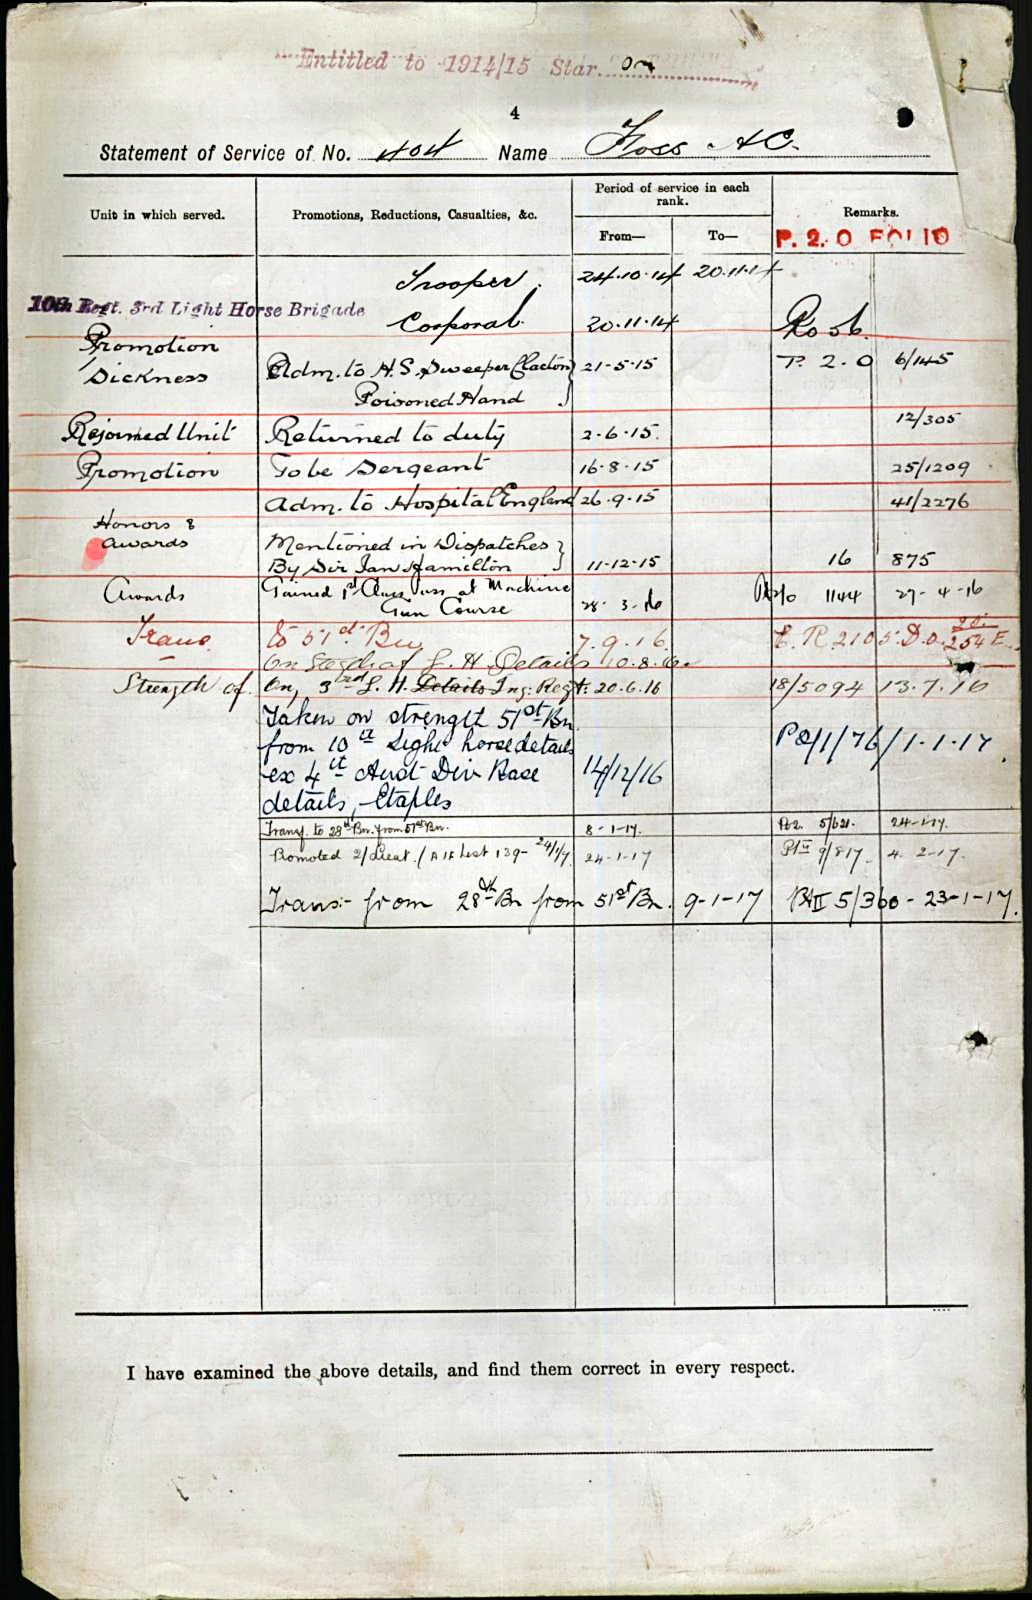 Entitled to 1914/15 Star.
4
Statement of Service of No. 404 Name Foss A C.
Unit in which served. Promotions, Reductions, Casualties, &c. Period of service in each rank. Remarks.
From— To—
P. 2. O FOLIO
Trooper. 24.10.14 20.11.14
10th Regt. 3rd Light Horse Brigade
Corporal. 20.11.14
Promotion
Sickness Adm. to H.S. Sweeper Clacton 21-5-15 P. 2. O 6/145
Poisoned Hand
Rejoined Unit Returned to duty 2.6.15. 12/305
Promotion To be Sergeant 16.8.15 25/1209
Adm. to Hospital England 26.9.15 41/2276
Honors &
Awards Mentioned in Dispatches
By Sir Ian Hamilton 11-12-15 16 875
Awards Gained 1st Class pass at Machine
Gun Course 28. 3.16 1144 27-4-16
Trans. to 51st Bn 7.9.16. E. R 2105. D.O. 20. 254 E.
On Strength of L. H. Details 10.8.16.
Strength of On, 3rd L. H. Details Tng: Regt: 20.6.16 18/5094 13.7.16
Taken on strength 51st Bn
from 10th Light horse details
ex 4th Aust Div Base 14/12/16 PO/1/76/1.1.17
details, Etaples
Transf. to 28th Bn. from 51st Bn. 8-1-17. Pt2. 5/621. 24-1-17.
Promoted 2/Lieut. (AIF List 139- 24/1/17 24-1-17 PtII 9/817 4. 2-17.
Trans:- from 28th Bn from 51st Bn. 9-1-17 PtII 5/360 - 23-1-17.
I have examined the above details, and find them correct in every respect.